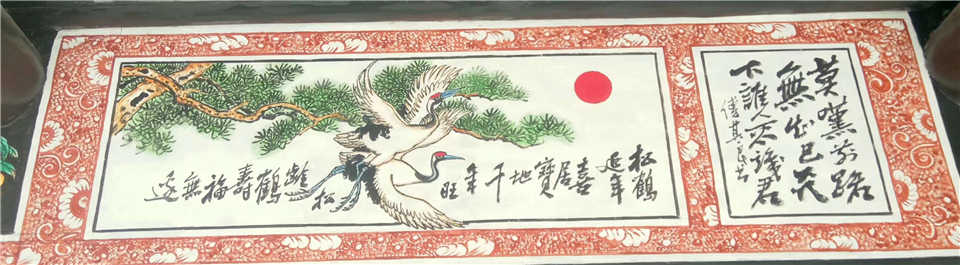 莫愁前路
無知己天
下誰人不識君
松鶴
延年
喜居寶地千年旺
松齡鶴壽福無邊